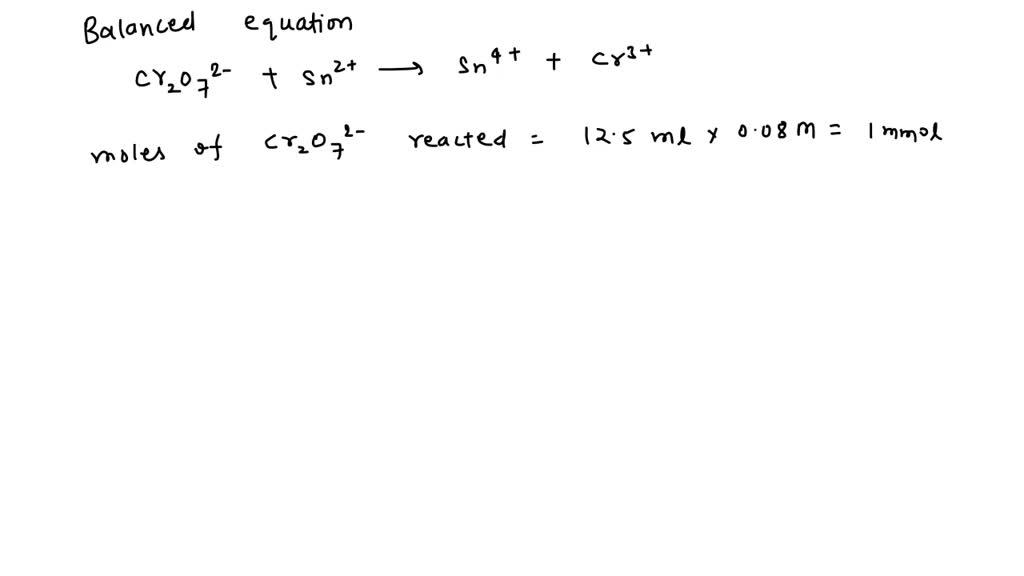 Balanced equation
Cr₂O₇²⁻ + Sn²⁺ ⟶ Sn⁴⁺ + Cr³⁺
moles of Cr₂O₇²⁻ reacted = 12.5 ml × 0.08 M = 1 mmol